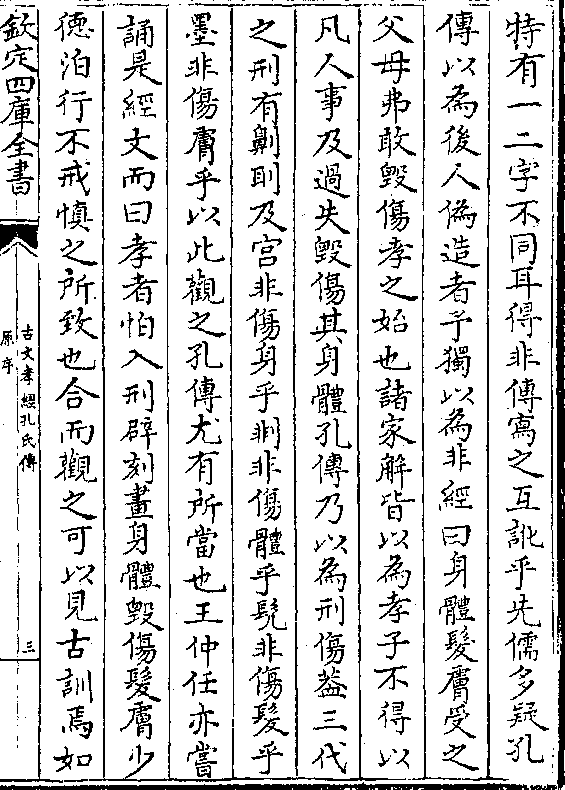 特有一二字不同耳得非傳寫之互訛乎先儒多疑孔
傳以為後人偽造者予獨以為非經曰身體髮膚受之
父母弗敢毀傷孝之始也諸家解皆以為孝子不得以
凡人事及過失毀傷其身體孔傳乃以為刑傷蓋三代
之刑有劓刵及宫非傷身乎剕非傷體乎髡非傷髮乎
墨非傷膚乎以此觀之孔傳尤有所當也王仲任亦嘗
誦是經文而曰孝者怕入刑辟刻畫身體毀傷髮膚少
德泊行不戒慎之所致也合而觀之可以見古訓焉如
欽定四庫全書
古文孝經孔氏傳
原序
三